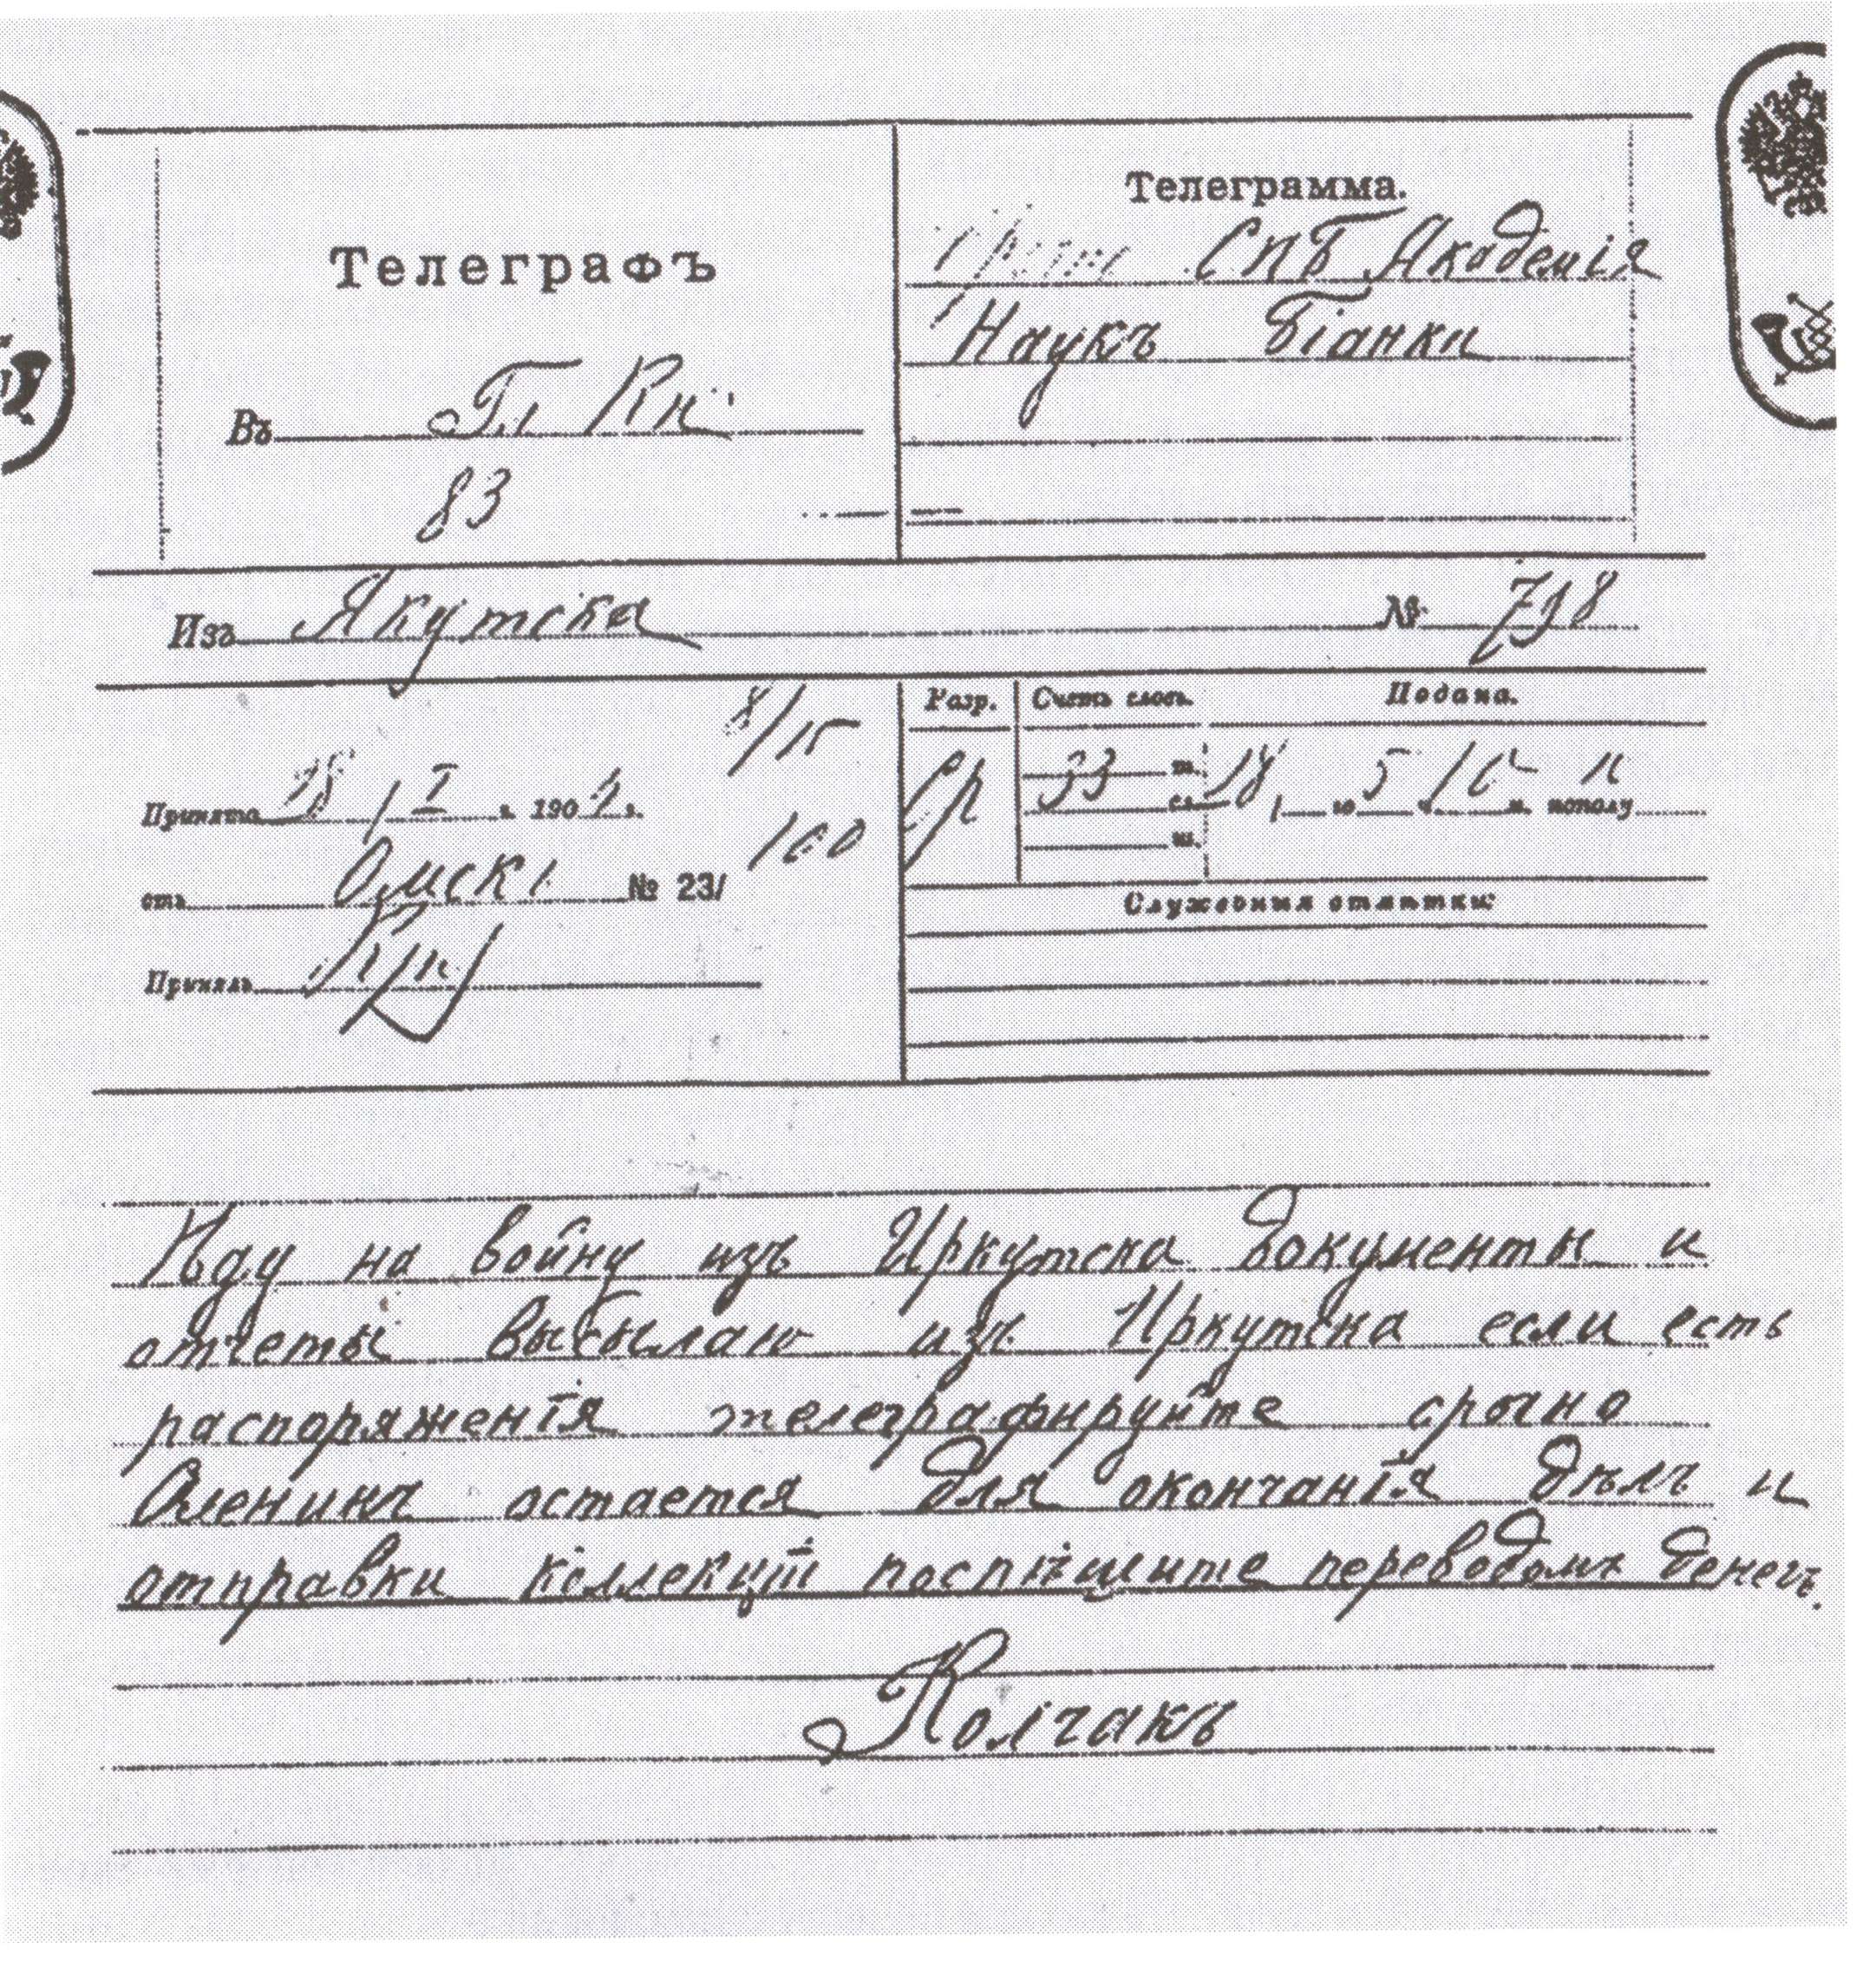 Телеграфъ
Въ
83
Телеграмма.
СПБ Академія
Наукъ Біанки
Изъ Якутска № 718
Принята 28/I г. 190 г.
отъ Омскъ № 23/
100
Принялъ
Разр. Счетъ словъ. Подана.
Ср 33 сл. 5 ч. м. пополу
Служебныя отмѣтки:
Иду на войну изъ Иркутска документы и
отчеты высылаю изъ Иркутска если есть
распоряженія телеграфируйте срочно
Оленинъ остается для окончанія дѣлъ и
отправки коллекцій поспѣшите переводомъ денегъ.
Колчакъ